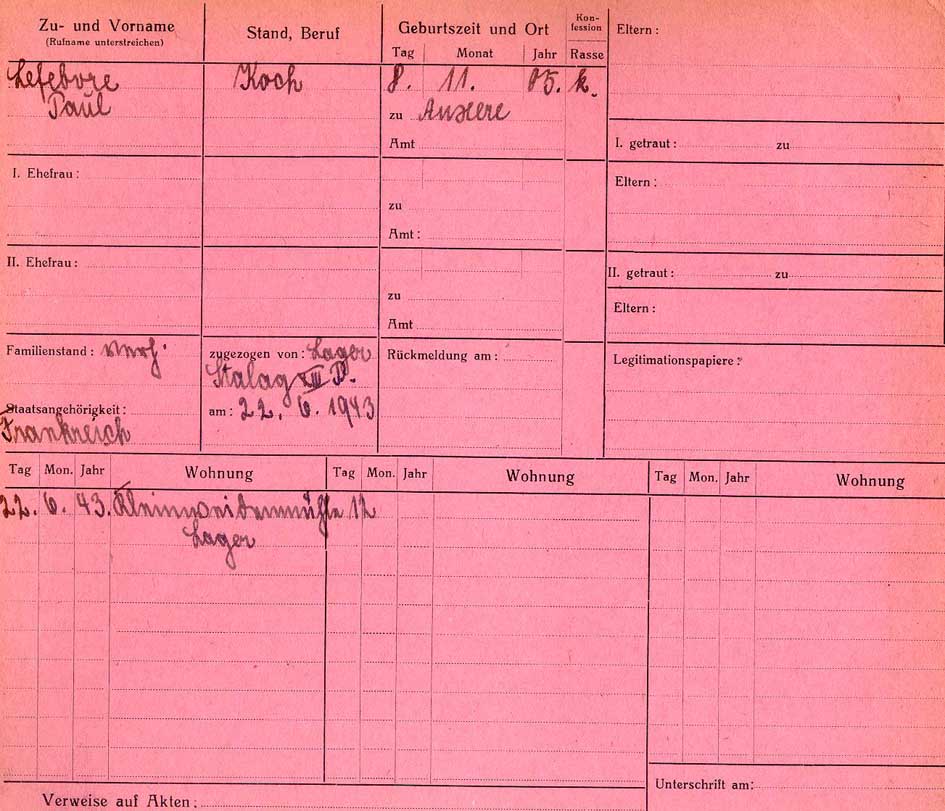 Zu- und Vorname
(Rufname unterstreichen)
Stand, Beruf
Geburtszeit und Ort
Tag Monat Jahr
Kon-
fession
Rasse
Eltern :
Lefebvre
Paul
Koch
8. 11. 05. k.
zu
Amt
I. getraut : zu
I. Ehefrau :
zu
Amt :
Eltern :
II. Ehefrau :
zu
Amt
II. getraut : zu
Eltern :
Familienstand : verh.
zugezogen von : Lager
Stalag XIII D.
am : 22. 6. 1943
Rückmeldung am :
Legitimationspapiere :
Staatsangehörigkeit :
Frankreich
Tag Mon. Jahr Wohnung Tag Mon. Jahr Wohnung Tag Mon. Jahr Wohnung
22. 6. 43. Kleinweidenmühle 12
Lager
Unterschrift am :
Verweise auf Akten :